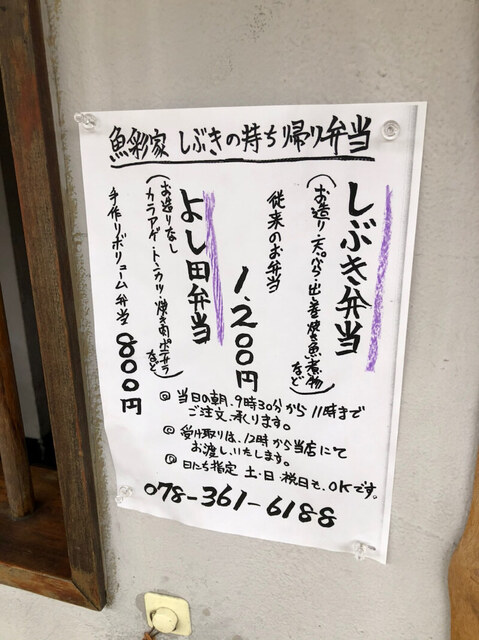 魚彩家 しぶきの持ち帰り弁当
しぶき弁当
(お造り・天ぷら・出し巻・焼き魚・煮物など)
従来のお弁当
1,200円
よし田弁当
(お造りなし
カラアゲ・トンカツ・焼き肉・ポテサラなど)
手作りボリューム弁当 800円
◎ 当日の朝、9時30分から11時まで
ご注文、承ります。
◎ 受け取りは、12時から当店にて
お渡しいたします。
◎ 日にち指定 土・日・祝日も、OKです。
078-361-6188